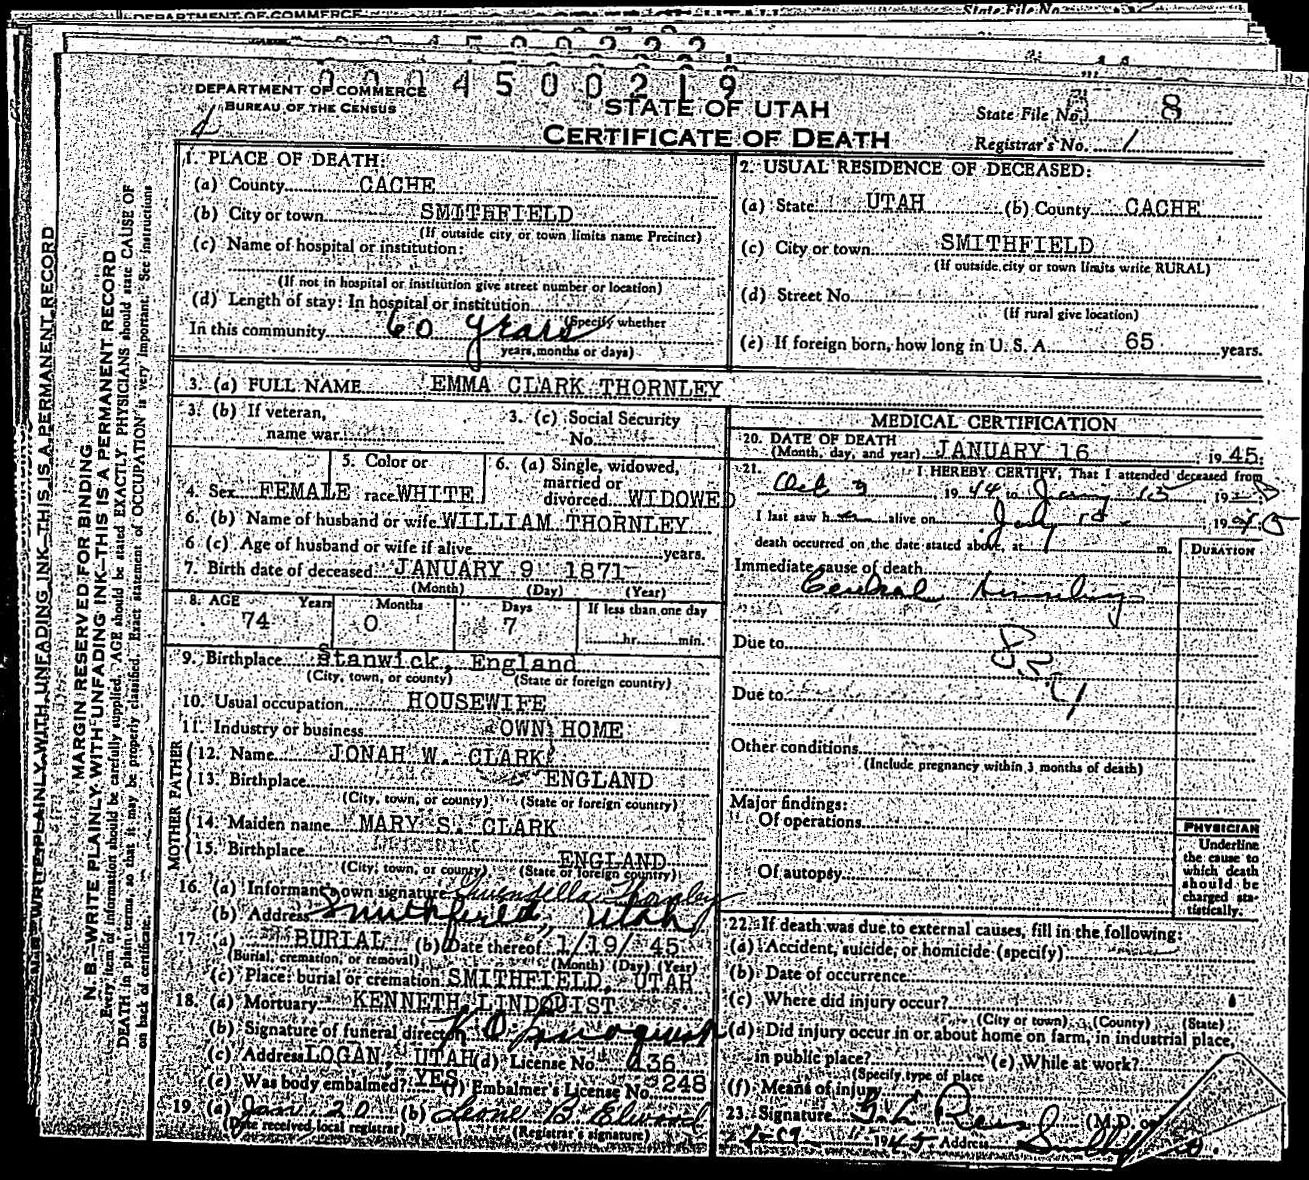 DEPARTMENT OF COMMERCE
State File No.
000450 0219
DEPARTMENT OF COMMERCE
BUREAU OF THE CENSUS
STATE OF UTAH
CERTIFICATE OF DEATH
State File No. 8
Registrar's No. 1
N. B.—WRITE PLAINLY WITH UNFADING INK—THIS IS A PERMANENT RECORD
MARGIN RESERVED FOR BINDING
N. B.—WRITE PLAINLY WITH UNFADING INK—THIS IS A PERMANENT RECORD
Every item of information should be carefully supplied. AGE should be stated EXACTLY. PHYSICIANS should state CAUSE OF
DEATH in plain terms, so that it may be properly classified. Exact statement of OCCUPATION is very important. See instructions
on back of certificate.
1. PLACE OF DEATH:
(a) County CACHE
(b) City or town SMITHFIELD
(If outside city or town limits name Precinct)
(c) Name of hospital or institution:
(If not in hospital or institution give street number or location)
(d) Length of stay: In hospital or institution
(Specify whether
In this community 60 years
years, months or days)
2. USUAL RESIDENCE OF DECEASED:
(a) State UTAH (b) County CACHE
(c) City or town SMITHFIELD
(If outside city or town limits write RURAL)
(d) Street No.
(If rural give location)
(e) If foreign born, how long in U. S. A. 65 years.
3. (a) FULL NAME EMMA CLARK THORNLEY
3. (b) If veteran,
name war
3. (c) Social Security
No.
4. Sex FEMALE
5. Color or
race WHITE
6. (a) Single, widowed,
married or
divorced WIDOWED
6. (b) Name of husband or wife WILLIAM THORNLEY
6 (c) Age of husband or wife if alive years.
7. Birth date of deceased JANUARY 9 1871
(Month) (Day) (Year)
8. AGE Years Months Days If less than one day
74 0 7 hr. min.
9. Birthplace Stanwick, England
(City, town, or county) (State or foreign country)
10. Usual occupation HOUSEWIFE
11. Industry or business OWN HOME
FATHER
12. Name JONAH W. CLARK
13. Birthplace ENGLAND
(City, town, or county) (State or foreign country)
MOTHER
14. Maiden name MARY S. CLARK
15. Birthplace ENGLAND
(City, town, or county) (State or foreign country)
16. (a) Informant's own signature Thornley
(b) Address Smithfield, Utah
17. (a) BURIAL (b) Date thereof 1/19/ 45
(Burial, cremation, or removal) (Month) (Day) (Year)
(c) Place: burial or cremation SMITHFIELD, UTAH
18. (a) Mortuary KENNETH LINDQUIST
(b) Signature of funeral director K O Lindquist
(c) Address LOGAN UTAH (d) License No. 136
(e) Was body embalmed? YES (f) Embalmer's License No. 248
19. (a) Jan 20 (b) Leone B. Elwood
(Date received local registrar) (Registrar's signature)
MEDICAL CERTIFICATION
20. DATE OF DEATH
(Month, day, and year) JANUARY 16 1945.
21. I HEREBY CERTIFY, That I attended deceased from
1944 to 15 19
I last saw h er alive on 1945
death occurred on the date stated above, at m.
DURATION
Immediate cause of death
Cerebral
Due to
83
Due to
Other conditions
(Include pregnancy within 3 months of death)
Major findings:
Of operations
Of autopsy
PHYSICIAN
Underline
the cause to
which death
should be
charged sta-
tistically.
22. If death was due to external causes, fill in the following:
(a) Accident, suicide, or homicide (specify)
(b) Date of occurrence
(c) Where did injury occur?
(City or town) (County) (State)
(d) Did injury occur in or about home on farm, in industrial place,
in public place? (e) While at work?
(Specify type of place
(f) Means of injury
23. Signature G L Rees (M.D. or
1945 Address